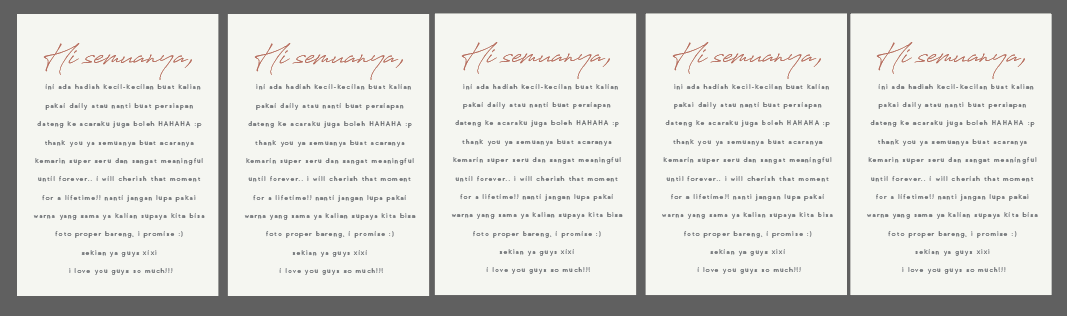 Hi semuanya,
ini ada hadiah kecil-kecilan buat kalian
pakai daily atau nanti buat persiapan
dateng ke acaraku juga boleh HAHAHA :p
thank you ya semuanya buat acaranya
kemarin super seru dan sangat meaningful
until forever.. i will cherish that moment
for a lifetime!! nanti jangan lupa pakai
warna yang sama ya kalian supaya kita bisa
foto proper bareng, i promise :)
sekian ya guys xixi
i love you guys so much!!!
Hi semuanya,
ini ada hadiah kecil-kecilan buat kalian
pakai daily atau nanti buat persiapan
dateng ke acaraku juga boleh HAHAHA :p
thank you ya semuanya buat acaranya
kemarin super seru dan sangat meaningful
until forever.. i will cherish that moment
for a lifetime!! nanti jangan lupa pakai
warna yang sama ya kalian supaya kita bisa
foto proper bareng, i promise :)
sekian ya guys xixi
i love you guys so much!!!
Hi semuanya,
ini ada hadiah kecil-kecilan buat kalian
pakai daily atau nanti buat persiapan
dateng ke acaraku juga boleh HAHAHA :p
thank you ya semuanya buat acaranya
kemarin super seru dan sangat meaningful
until forever.. i will cherish that moment
for a lifetime!! nanti jangan lupa pakai
warna yang sama ya kalian supaya kita bisa
foto proper bareng, i promise :)
sekian ya guys xixi
i love you guys so much!!!
Hi semuanya,
ini ada hadiah kecil-kecilan buat kalian
pakai daily atau nanti buat persiapan
dateng ke acaraku juga boleh HAHAHA :p
thank you ya semuanya buat acaranya
kemarin super seru dan sangat meaningful
until forever.. i will cherish that moment
for a lifetime!! nanti jangan lupa pakai
warna yang sama ya kalian supaya kita bisa
foto proper bareng, i promise :)
sekian ya guys xixi
i love you guys so much!!!
Hi semuanya,
ini ada hadiah kecil-kecilan buat kalian
pakai daily atau nanti buat persiapan
dateng ke acaraku juga boleh HAHAHA :p
thank you ya semuanya buat acaranya
kemarin super seru dan sangat meaningful
until forever.. i will cherish that moment
for a lifetime!! nanti jangan lupa pakai
warna yang sama ya kalian supaya kita bisa
foto proper bareng, i promise :)
sekian ya guys xixi
i love you guys so much!!!